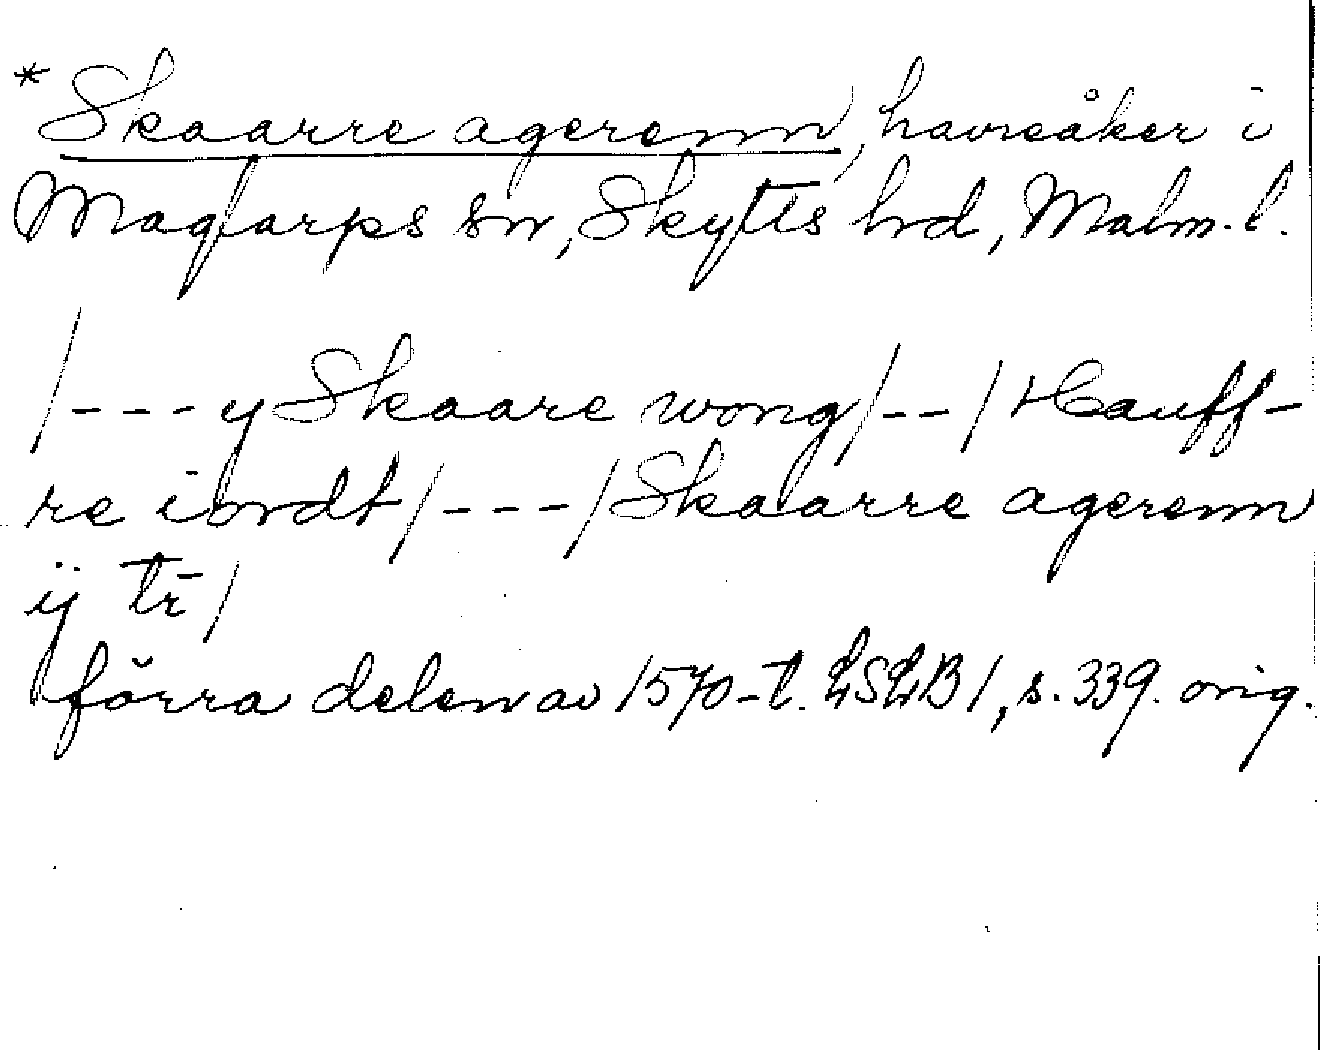 *Skaarre agerenn, havreåker i
Maglarps sn, Skytts hd, Malm. l.
/---y Skaare wong/--/Hauff-
re iordt/---/Skaarre agerenn
ij tr̄/
förra delen av 1570-t. LSLB 1, s. 339. orig.